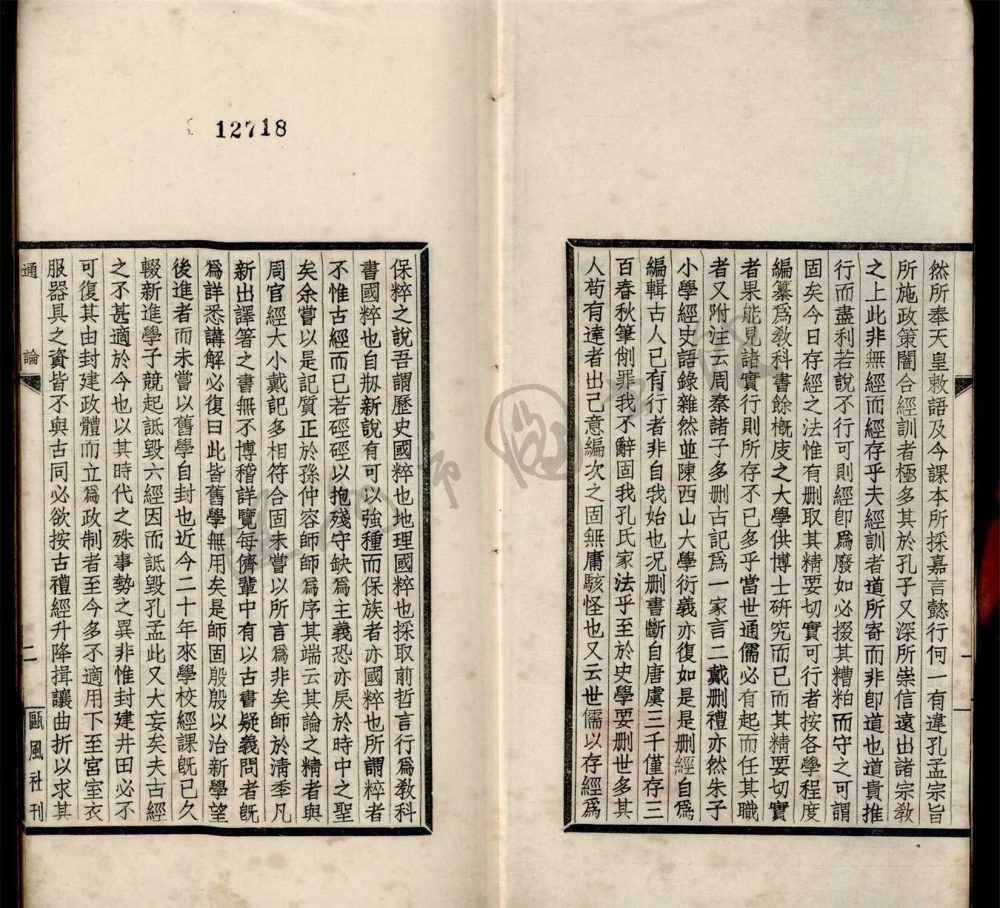 然所奉天皇敕語及今課本所採嘉言懿行何一有違孔孟宗旨
所施政策闇合經訓者極多其於孔子又深所崇信遠出諸宗教
之上此非無經而經存乎夫經訓者道所寄而非卽道也道貴推
行而盡利若說不行可則經卽爲廢如必掇其糟粕而守之可謂
固矣今日存經之法惟有删取其精要切實可行者按各學程度
編纂爲敎科書餘槪庋之大學供博士硏究而已而其精要切實
者果能見諸實行則所存不已多乎當世通儒必有起而任其職
者又附注云周秦諸子多删古記爲一家言二戴删禮亦然朱子
小學經史語錄雜然並陳西山大學衍義亦復如是是删經自爲
編輯古人已有行者非自我始也况删書斷自唐虞三千僅存三
百春秋筆削罪我不辭固我孔氏家法乎至於史學要删世多其
人苟有達者出己意編次之固無庸駭怪也又云世儒以存經爲
保粹之說吾謂歷史國粹也地理國粹也採取前哲言行爲敎科
書國粹也自扨新說有可以強種而保族者亦國粹也所謂粹者
不惟古經而已若硜硜以抱殘守缺爲主義恐亦戾於時中之聖
矣余嘗以是記質正於孫仲容師師爲序其端云其論之精者與
周官經大小戴記多相符合固未嘗以所言爲非矣師於淸季凡
新出譯箸之書無不博稽詳覽每儕輩中有以古書疑義問者旣
爲詳悉講解必復曰此皆舊學無用矣是師固殷殷以治新學望
後進者而未嘗以舊學自封也近今二十年來學校經課旣已久
輟新進學子競起詆毀六經因而詆毀孔孟此又大妄矣夫古經
之不甚適於今也以其時代之殊事勢之異非惟封建井田必不
可復其由封建政體而立爲政制者至今多不適用下至宮室衣
服器具之資皆不與古同必欲按古禮經升降揖讓曲折以求其
通 論
二
甌風社刊
12718